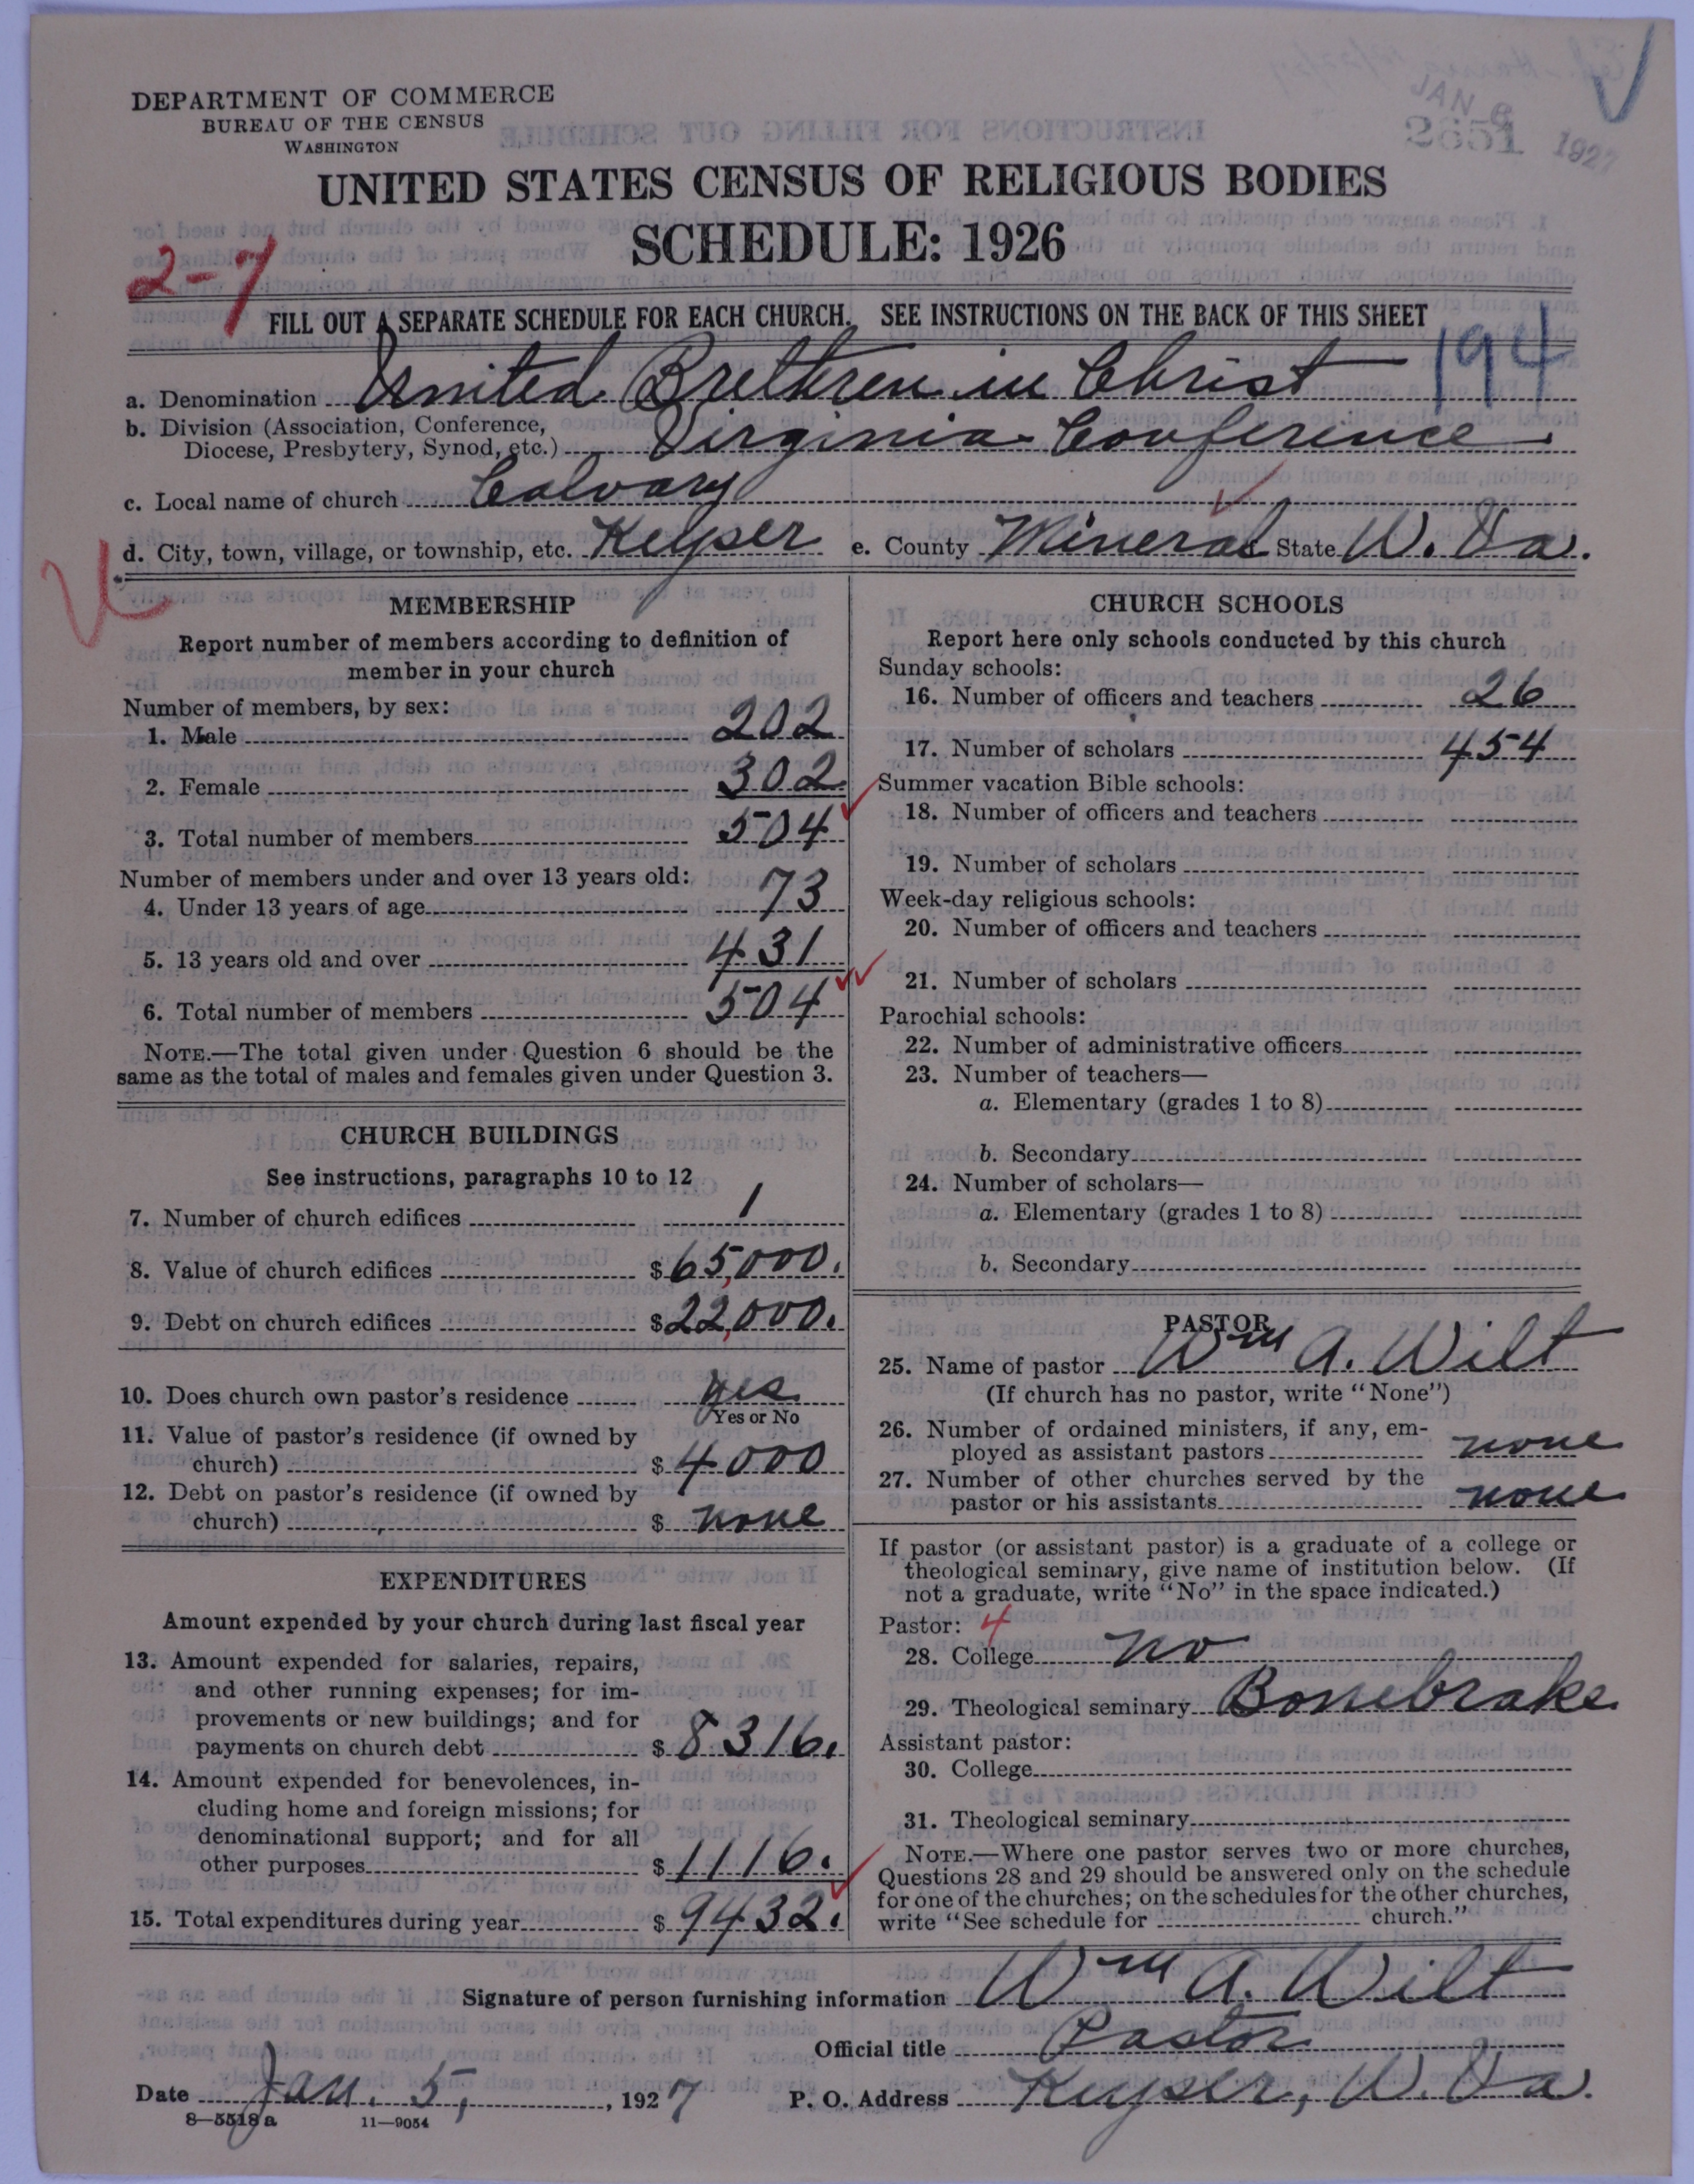 DEPARTMENT OF COMMERCE
BUREAU OF THE CENSUS
WASHINGTON
JAN 6 1927
2651
UNITED STATES CENSUS OF RELIGIOUS BODIES
SCHEDULE: 1926
2-7
FILL OUT A SEPARATE SCHEDULE FOR EACH CHURCH. SEE INSTRUCTIONS ON THE BACK OF THIS SHEET
194
a. Denomination United Brethren in Christ
b. Division (Association, Conference, Diocese, Presbytery, Synod, etc.) Virginia Conference
c. Local name of church Calvary
d. City, town, village, or township, etc. Keyser e. County Mineral State W. Va.
MEMBERSHIP
Report number of members according to definition of
member in your church
Number of members, by sex:
1. Male 202
2. Female 302
3. Total number of members 504
Number of members under and over 13 years old:
4. Under 13 years of age 73
5. 13 years old and over 431
6. Total number of members 504
NOTE.—The total given under Question 6 should be the
same as the total of males and females given under Question 3.
CHURCH BUILDINGS
See instructions, paragraphs 10 to 12
7. Number of church edifices 1
8. Value of church edifices $65,000.
9. Debt on church edifices $22,000.
10. Does church own pastor's residence yes
Yes or No
11. Value of pastor's residence (if owned by
church) $4000
12. Debt on pastor's residence (if owned by
church) $ none
EXPENDITURES
Amount expended by your church during last fiscal year
13. Amount expended for salaries, repairs,
and other running expenses; for im-
provements or new buildings; and for
payments on church debt $8316.
14. Amount expended for benevolences, in-
cluding home and foreign missions; for
denominational support; and for all
other purposes $1116.
15. Total expenditures during year $9432.
CHURCH SCHOOLS
Report here only schools conducted by this church
Sunday schools:
16. Number of officers and teachers 26
17. Number of scholars 454
Summer vacation Bible schools:
18. Number of officers and teachers
19. Number of scholars
Week-day religious schools:
20. Number of officers and teachers
21. Number of scholars
Parochial schools:
22. Number of administrative officers
23. Number of teachers—
a. Elementary (grades 1 to 8)
b. Secondary
24. Number of scholars—
a. Elementary (grades 1 to 8)
b. Secondary
PASTOR
25. Name of pastor Wm A. Wilt
(If church has no pastor, write "None")
26. Number of ordained ministers, if any, em-
ployed as assistant pastors none
27. Number of other churches served by the
pastor or his assistants none
If pastor (or assistant pastor) is a graduate of a college or
theological seminary, give name of institution below. (If
not a graduate, write "No" in the space indicated.)
Pastor: 4
28. College no
29. Theological seminary Bonebrake
Assistant pastor:
30. College
31. Theological seminary
NOTE.—Where one pastor serves two or more churches,
Questions 28 and 29 should be answered only on the schedule
for one of the churches; on the schedules for the other churches,
write "See schedule for church."
Signature of person furnishing information Wm A. Wilt
Official title Pastor
Date Jan. 5, 1927 P. O. Address Keyser, W. Va.
8—5518 a 11—9054